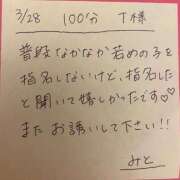 3/28 100分 T様
普段なかなか若めの子を
指名しないけど、指名した
と聞いて嬉しかったです♡♡
またお誘いして下さい!!
みと